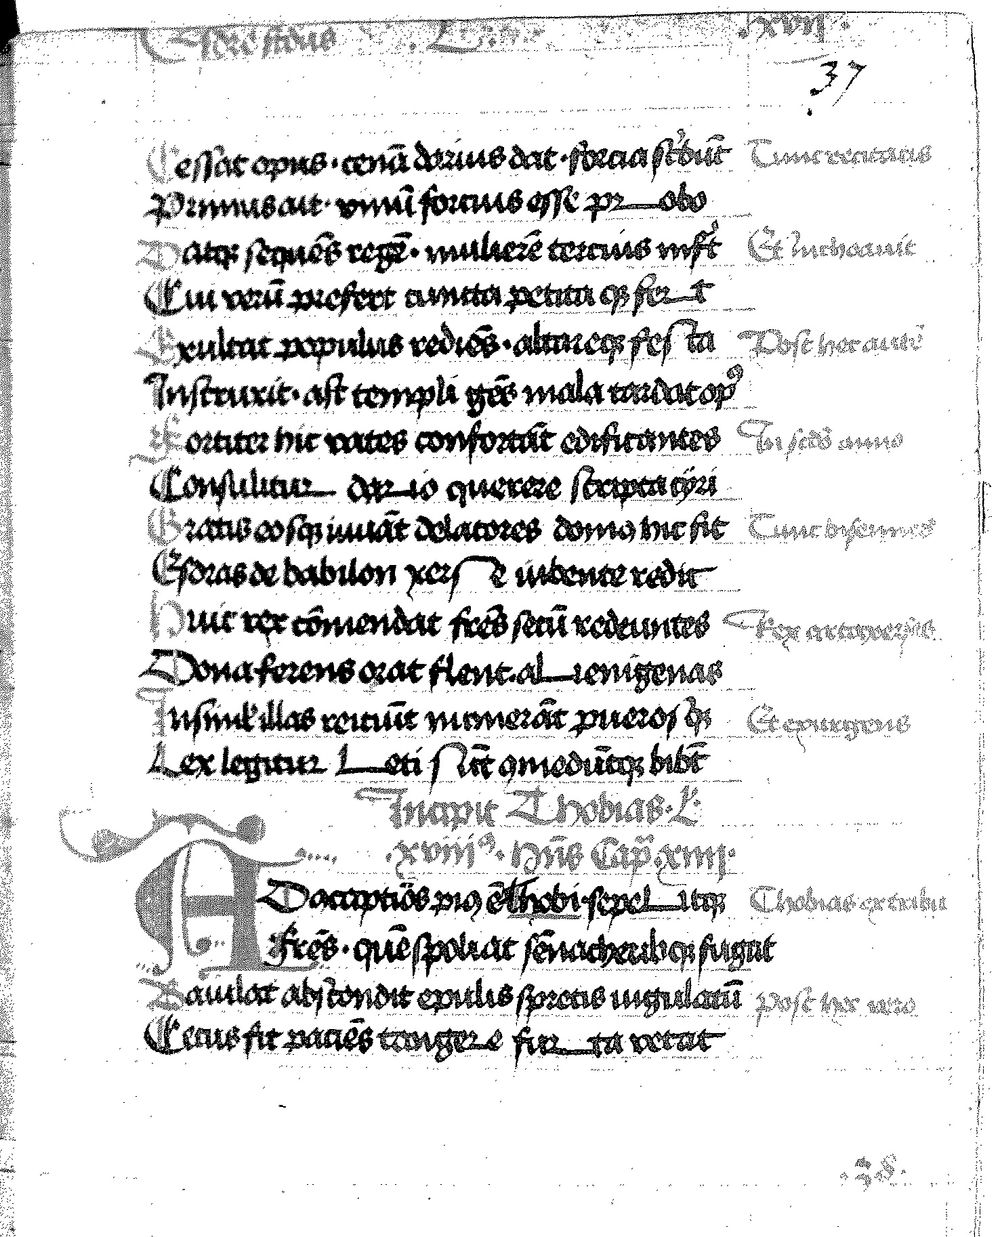 Esdre scd̄us .L. .xvij.
37
Cessat opus · cenā darius dat · forcia scͥbūt Tunc recitatis
Primus ait · vinū forcius esse probo
Datqꝫ sequēs regē · mulierē tercius insͥt Et Inchoauit
Cui verū prefert cuncta petita qꝫ fert
Exultat populus rediēs · altareqꝫ festa Post hec autē
Instruxit · ast templi gēs mala tardat opꝰ
Fortiter hic vates confortāt edificantes In scd̄o anno
Consulitur dario querere scripta cyri
Gratis eosqꝫ iuuāt delatores domꝰ hic fit Tunc bisennes
Esdras de babilon xerse iubente redit
Huic rex cōmendat fr̄es secū redeuntes Rex artaxerses
Dona ferens orat flent · alienigenas
Insimul illas reiciūt numerāt pueros qꝫ Et exurgens
Lex legitur Leti sūt ꝯmedūtqꝫ bibūt
Incipit Thobias · L.
.xviijꝰ. Hn̄s Cap̄. xiiij.
ADcaptiōs piꝰ ē thobi · sepelitqꝫ Thobias ex tribu
Fr̄es · quē spoliat sēnacheribqꝫ fugat
Baiulat abscondit epulis spretis iugulatū Post hec vero
Cecus fit paciēs tangere furta vetat
.38.